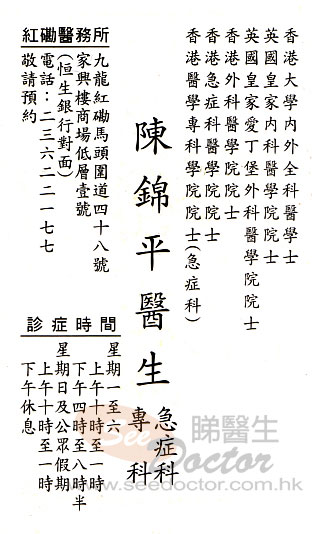 香港大學內外全科醫學士
英國皇家內科醫學院院士
英國皇家愛丁堡外科醫學院院士
香港外科醫學院院士
香港急症科醫學院院士
香港醫學專科學院院士(急症科)
陳錦平醫生
急症科
專科
紅磡醫務所
九龍紅磡馬頭圍道四十八號
家興樓商場低層壹號
(恒生銀行對面)
電話：二三六二二一七七
敬請預約
診症時間
星期一至六
上午十時至一時
下午四時至八時半
星期日及公眾假期
上午十時至一時
下午休息
See Doctor 睇醫生
www.seedoctor.com.hk